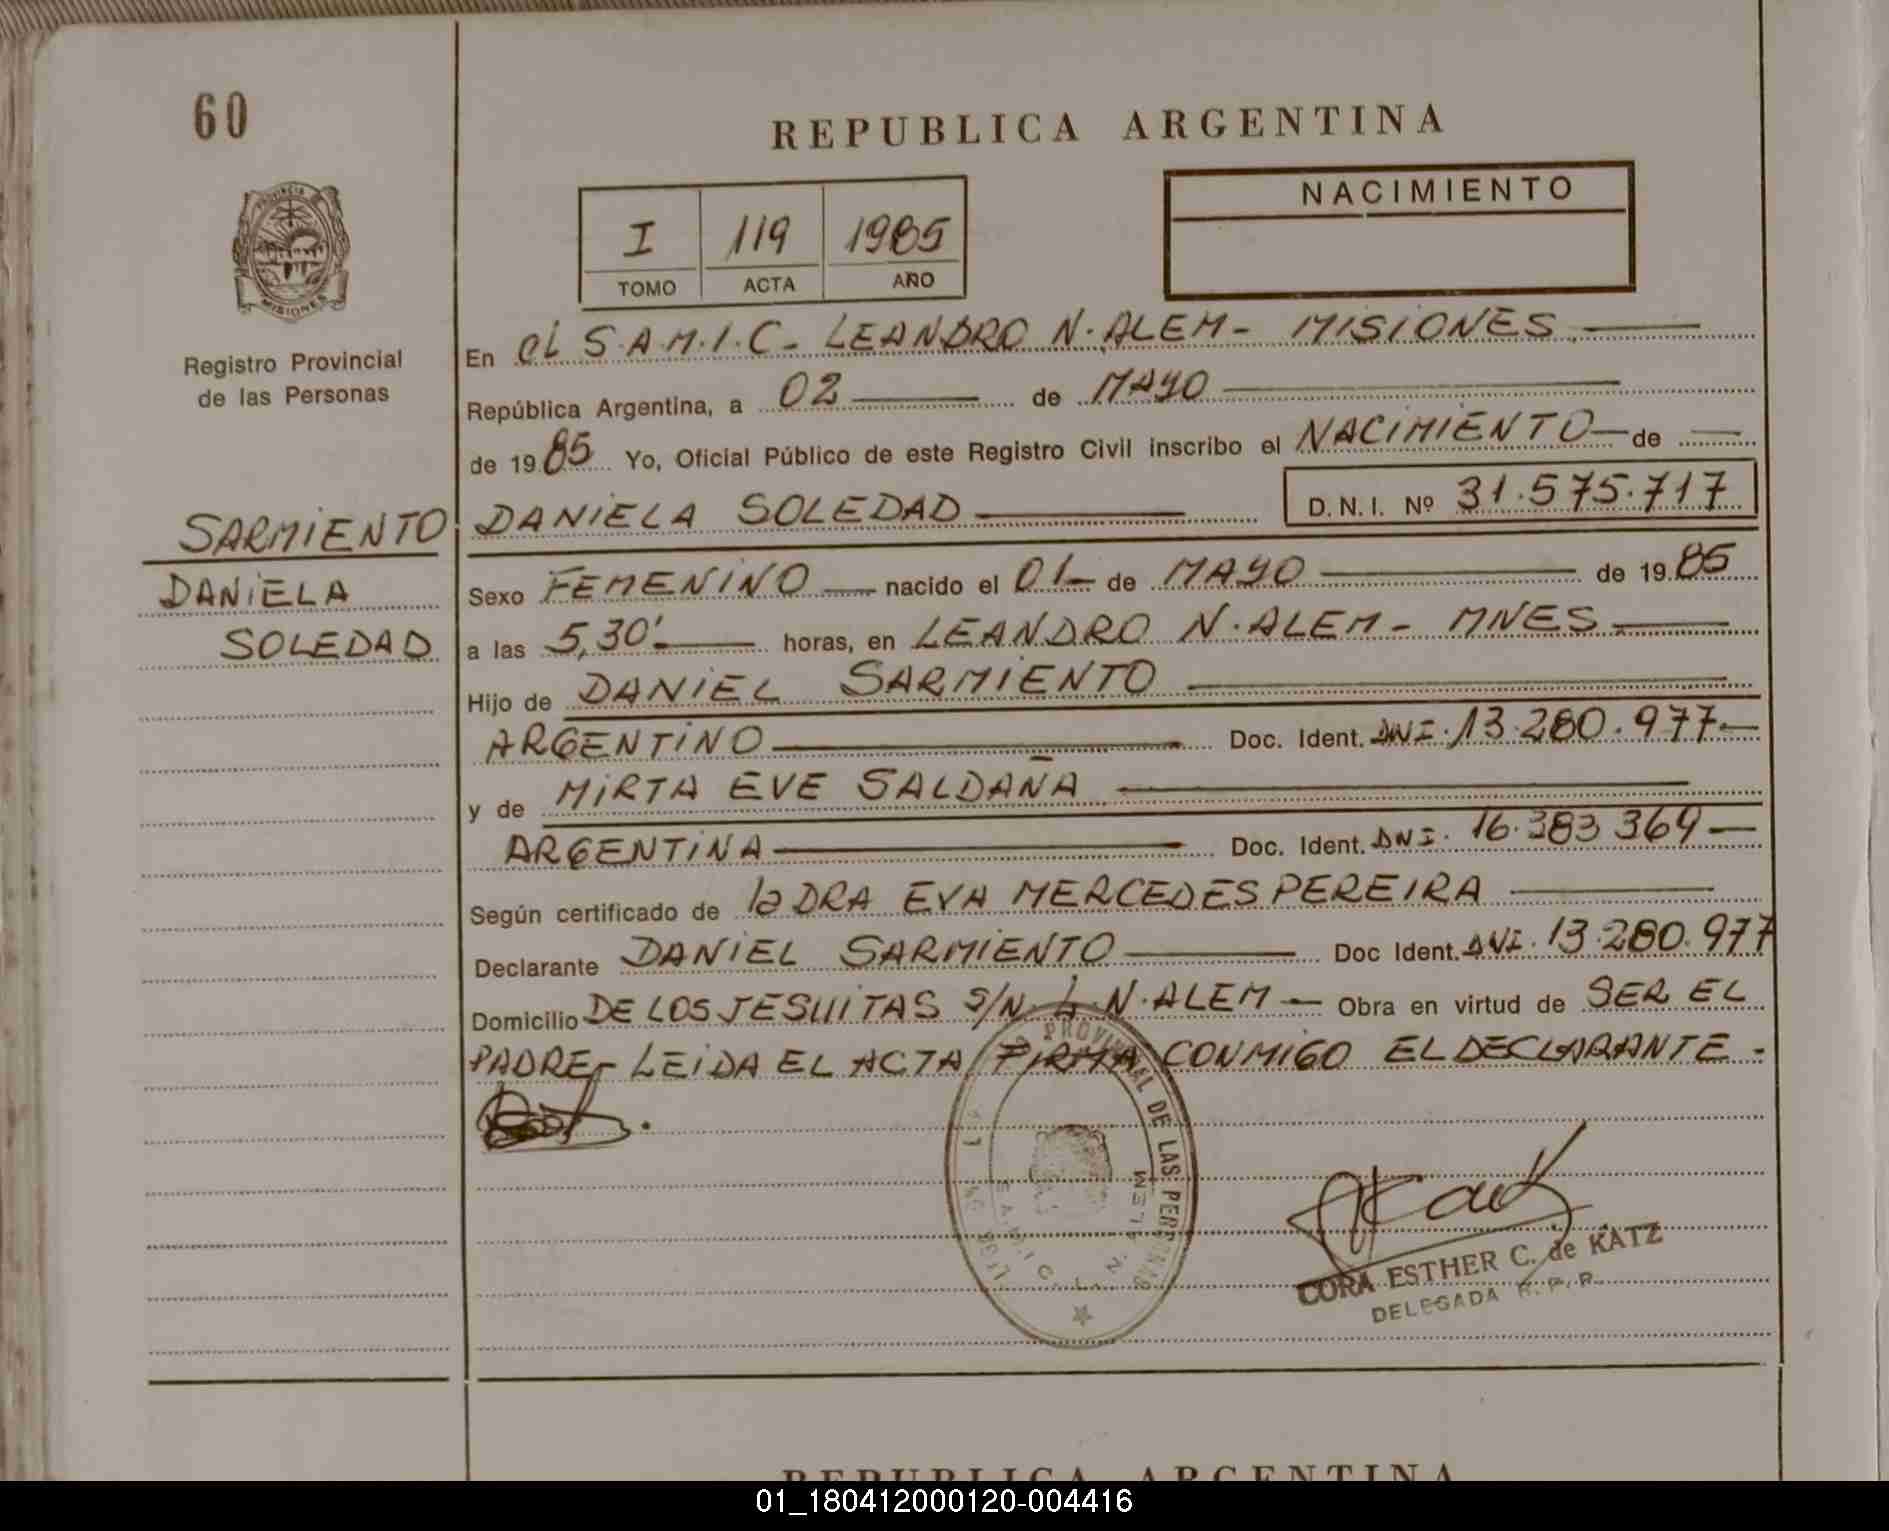 60
REPUBLICA ARGENTINA
PROVINCIA
MISIONES
Registro Provincial
de las Personas
I 119 1985
TOMO ACTA AÑO
NACIMIENTO
En el S.A.M.I.C- LEANDRO N.ALEM- MISIONES
República Argentina, a 02 de MAYO
de 1985 Yo, Oficial Público de este Registro Civil inscribo el NACIMIENTO de
SARMIENTO DANIELA SOLEDAD D.N.I. Nº 31.575.717
DANIELA
SOLEDAD
Sexo FEMENINO nacido el 01 de MAYO de 1985
a las 5,30' horas, en LEANDRO N.ALEM- MNES
Hijo de DANIEL SARMIENTO
ARGENTINO Doc. Ident. DNI. 13.280.977
y de MIRTA EVE SALDAÑA
ARGENTINA Doc. Ident. DNI. 16.383 369
Según certificado de la DRA EVA MERCEDES PEREIRA
Declarante DANIEL SARMIENTO Doc Ident. DNI. 13.280.977
Domicilio DE LOS JESUITAS S/N. L.N.ALEM Obra en virtud de SER EL
PADRE- LEIDA EL ACTA FIRMA CONMIGO EL DECLARANTE-
PROVINCIAL DE LAS PERSONAS
S.A.M.I.C. L.N. ALEM
CORA ESTHER C. de KATZ
DELEGADA R.P.P.
REPUBLICA ARGENTINA
01_180412000120-004416